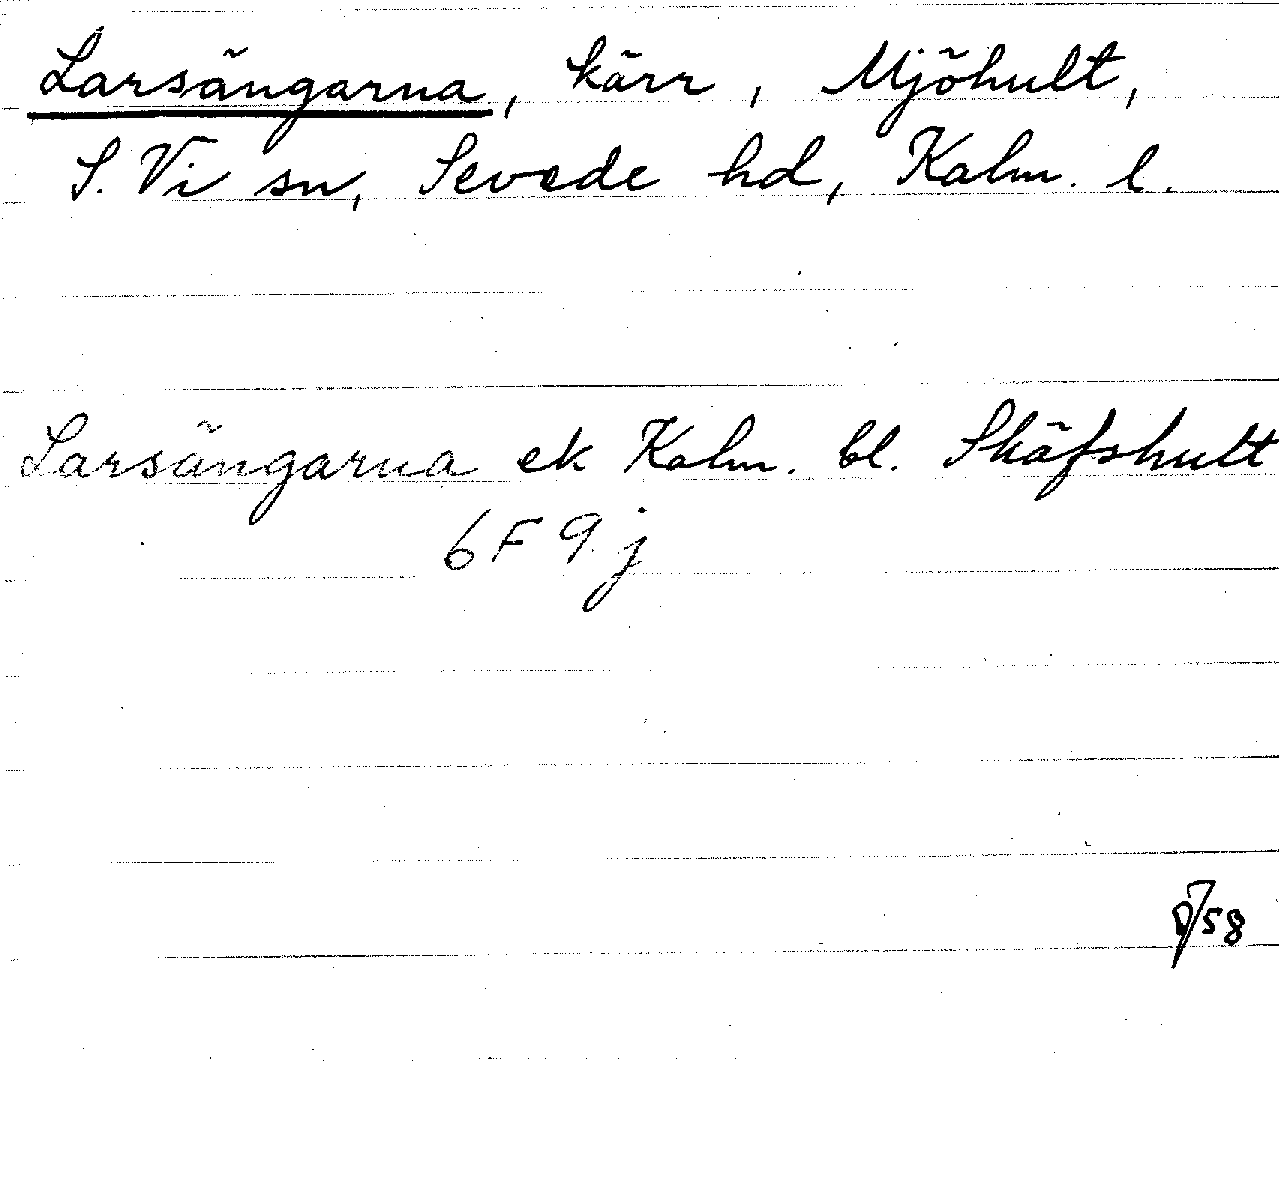 Larsängarna, kärr, Mjöhult,
S. Vi sn, Sevede hd, Kalm. l.
Larsängarna ek Kalm. bl. Skäfshult
6 F 9 j
/58